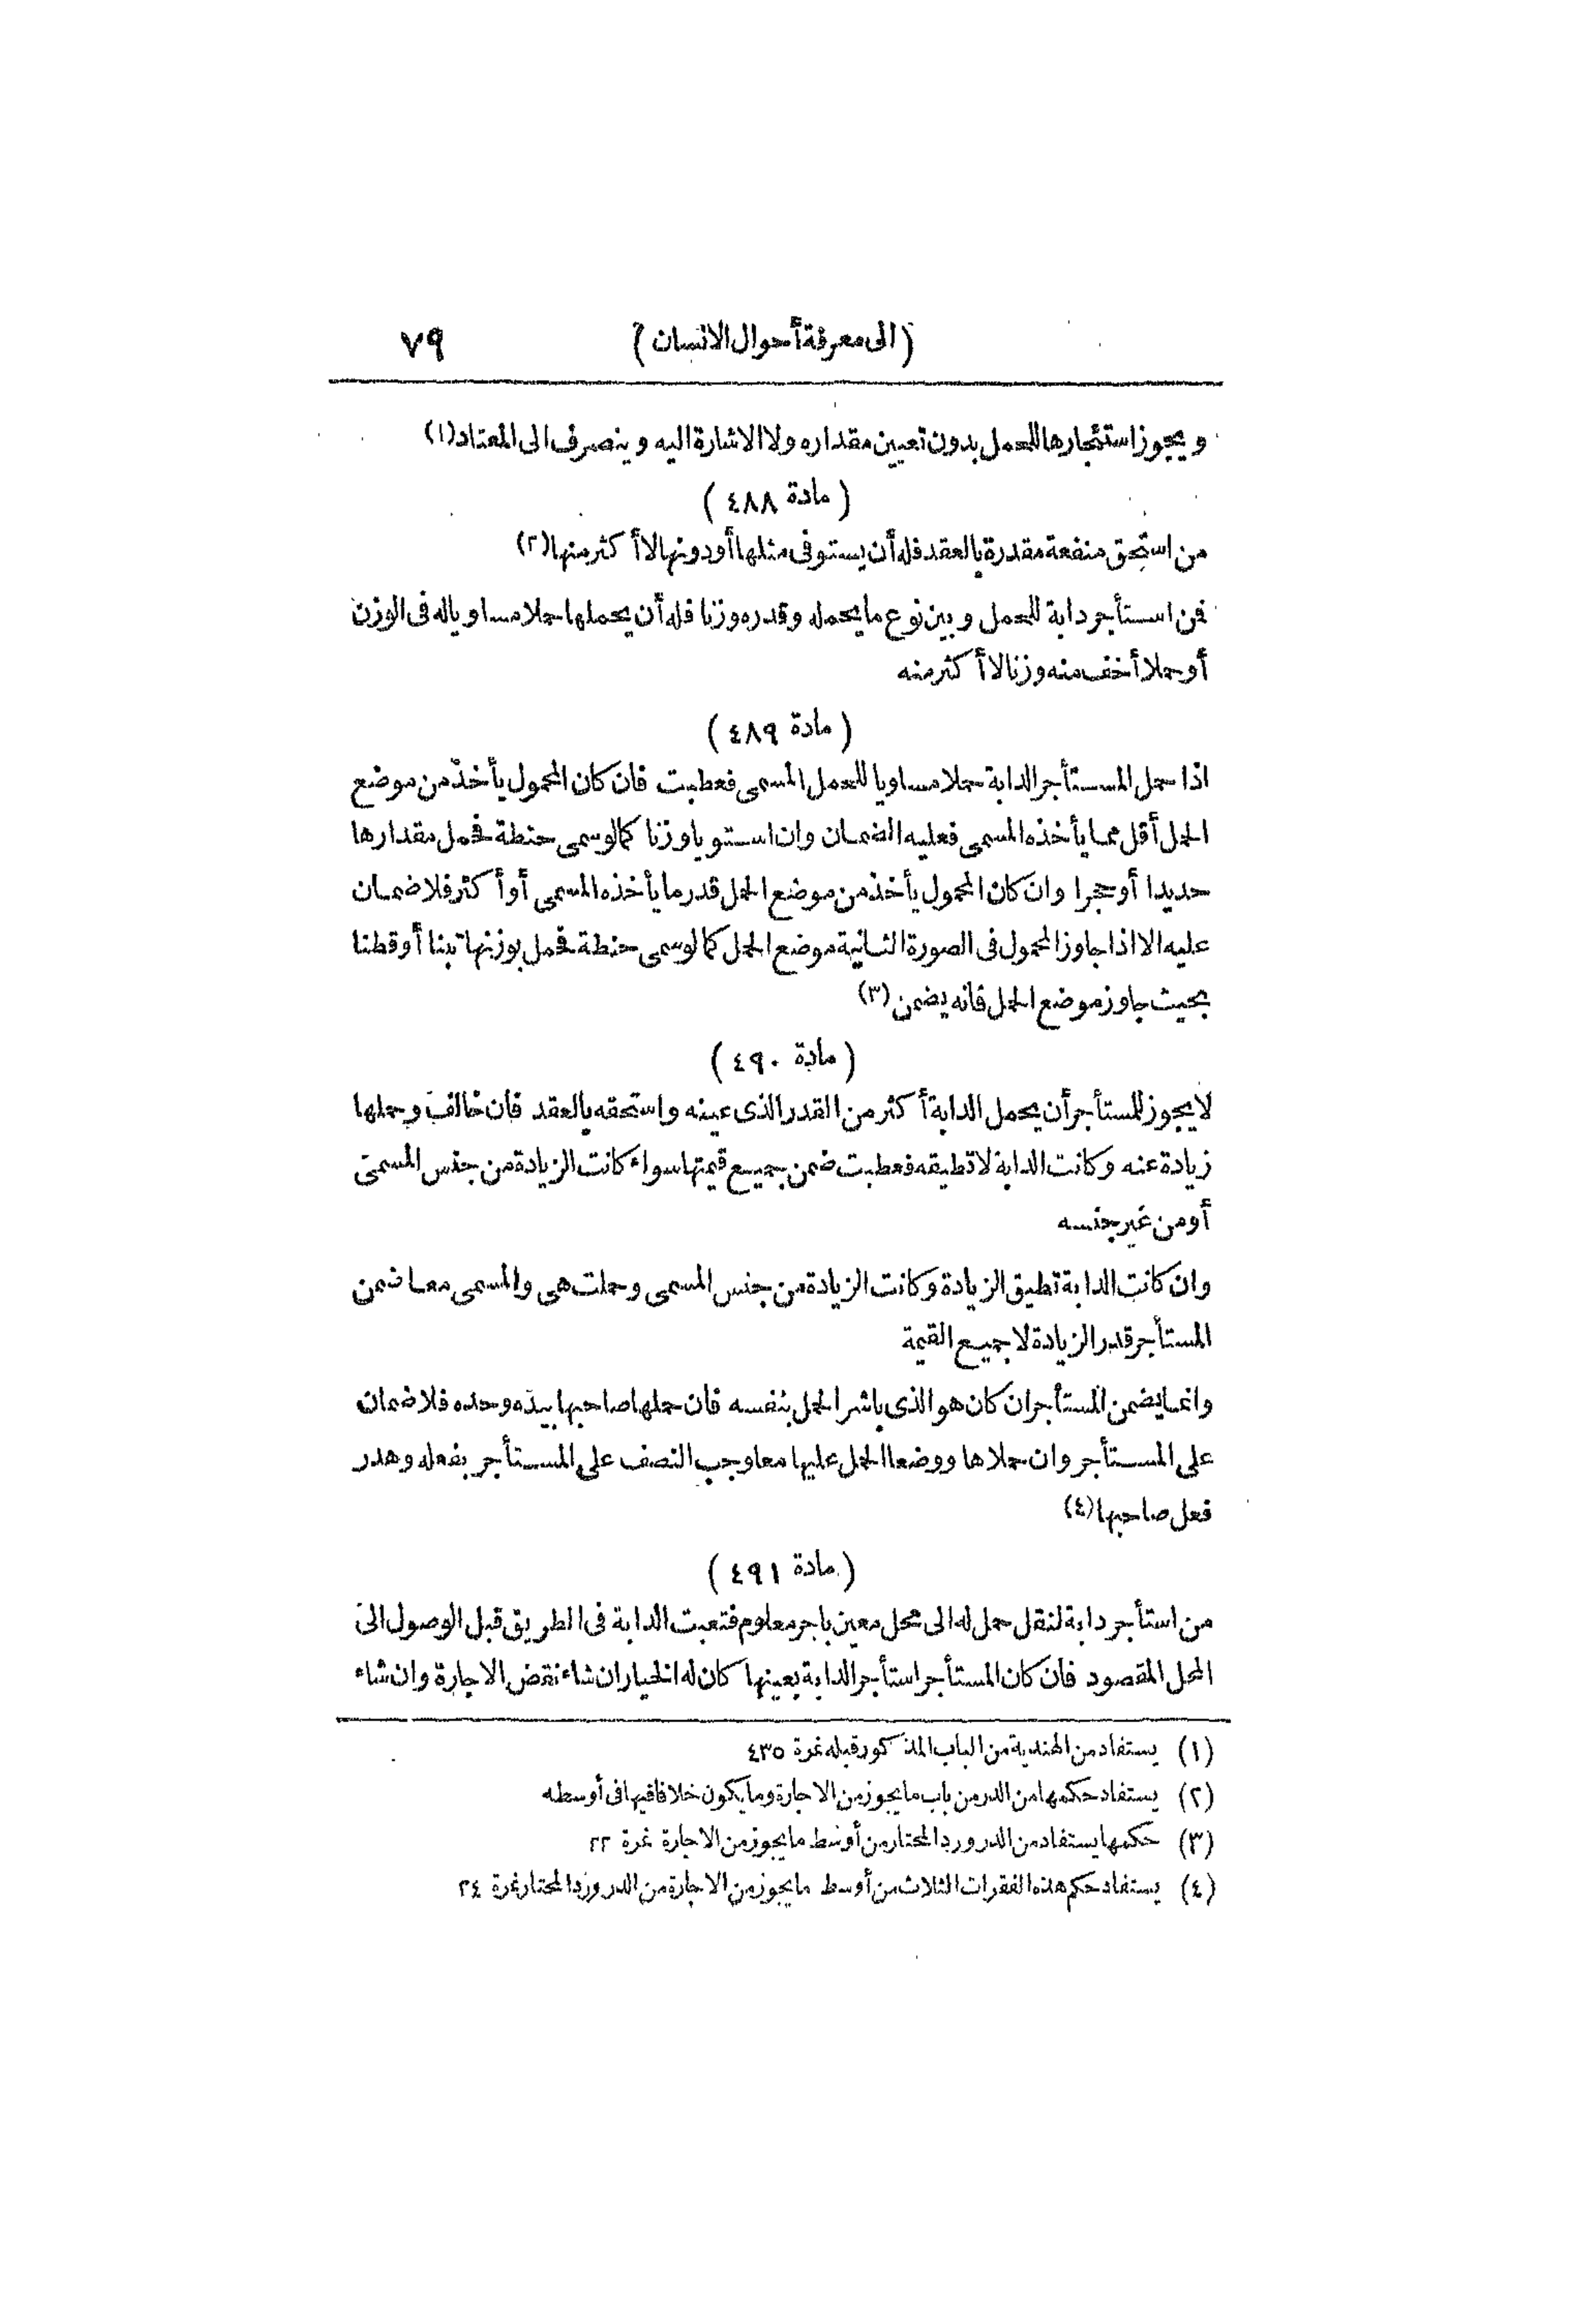 (الى معرفة أحوال الانسان) ٧٩
ويجوز استئجارها للحمل بدون تعيين مقداره ولا الاشارة اليه وينصرف الى المعتاد (١)
(مادة ٤٨٨)
من استحق منفعة مقدرة بالعقد فله أن يستوفى مثلها أو دونها لا أكثر منها (٢)
فمن استأجر دابة للحمل وبين نوع ما يحمله وقدره وزنا فله أن يحملها حملا مساويا له فى الوزن
أو حملا أخف منه وزنا لا أكثر منه
(مادة ٤٨٩)
اذا حمل المستأجر الدابة حملا مساويا للحمل المسمى فعطبت فان كان المحمول يأخذ من موضع
الحمل أقل مما يأخذه المسمى فعليه الضمان وان استويا وزنا كما لو سمى حنطة فحمل مقدارها
حديدا أو حجرا وان كان المحمول يأخذ من موضع الحمل قدر ما يأخذه المسمى أو أكثر فلا ضمان
عليه الا اذا جاوز المحمول فى الصورة الثانية موضع الحمل كما لو سمى حنطة فحمل بوزنها تبنا أو قطنا
بحيث جاوز موضع الحمل فانه يضمن (٣)
(مادة ٤٩٠)
لا يجوز للمستأجر أن يحمل الدابة أكثر من القدر الذى عينه واستحقه بالعقد فان خالف وحملها
زيادة عنه وكانت الدابة لا تطيقه فعطبت ضمن جميع قيمتها سواء كانت الزيادة من جنس المسمى
أو من غير جنسه
وان كانت الدابة تطيق الزيادة وكانت الزيادة من جنس المسمى وحملت هى والمسمى معا ضمن
المستأجر قدر الزيادة لا جميع القيمة
وانما يضمن المستأجر ان كان هو الذى باشر الحمل بنفسه فان حملها صاحبها بيده وحده فلا ضمان
على المستأجر وان حملاها ووضعا الحمل عليها معا وجب النصف على المستأجر بفعله وهدر
فعل صاحبها (٤)
(مادة ٤٩١)
من استأجر دابة لنقل حمل له الى محل معين باجر معلوم فتعبت الدابة فى الطريق قبل الوصول الى
المحل المقصود فان كان المستأجر استأجر الدابة بعينها كان له الخيار ان شاء نقض الاجارة وان شاء
(١) يستفاد من الهندية من الباب المذكور قبله نمرة ٤٣٥
(٢) يستفاد حكمها من الدر من باب ما يجوز من الاجارة وما يكون خلافا فيها فى أوسطه
(٣) حكمها يستفاد من الدر ورد المحتار من أوسط ما يجوز من الاجارة نمرة ٢٢
(٤) يستفاد حكم هذه الفقرات الثلاث من أوسط ما يجوز من الاجارة من الدر ورد المحتار نمرة ٢٤